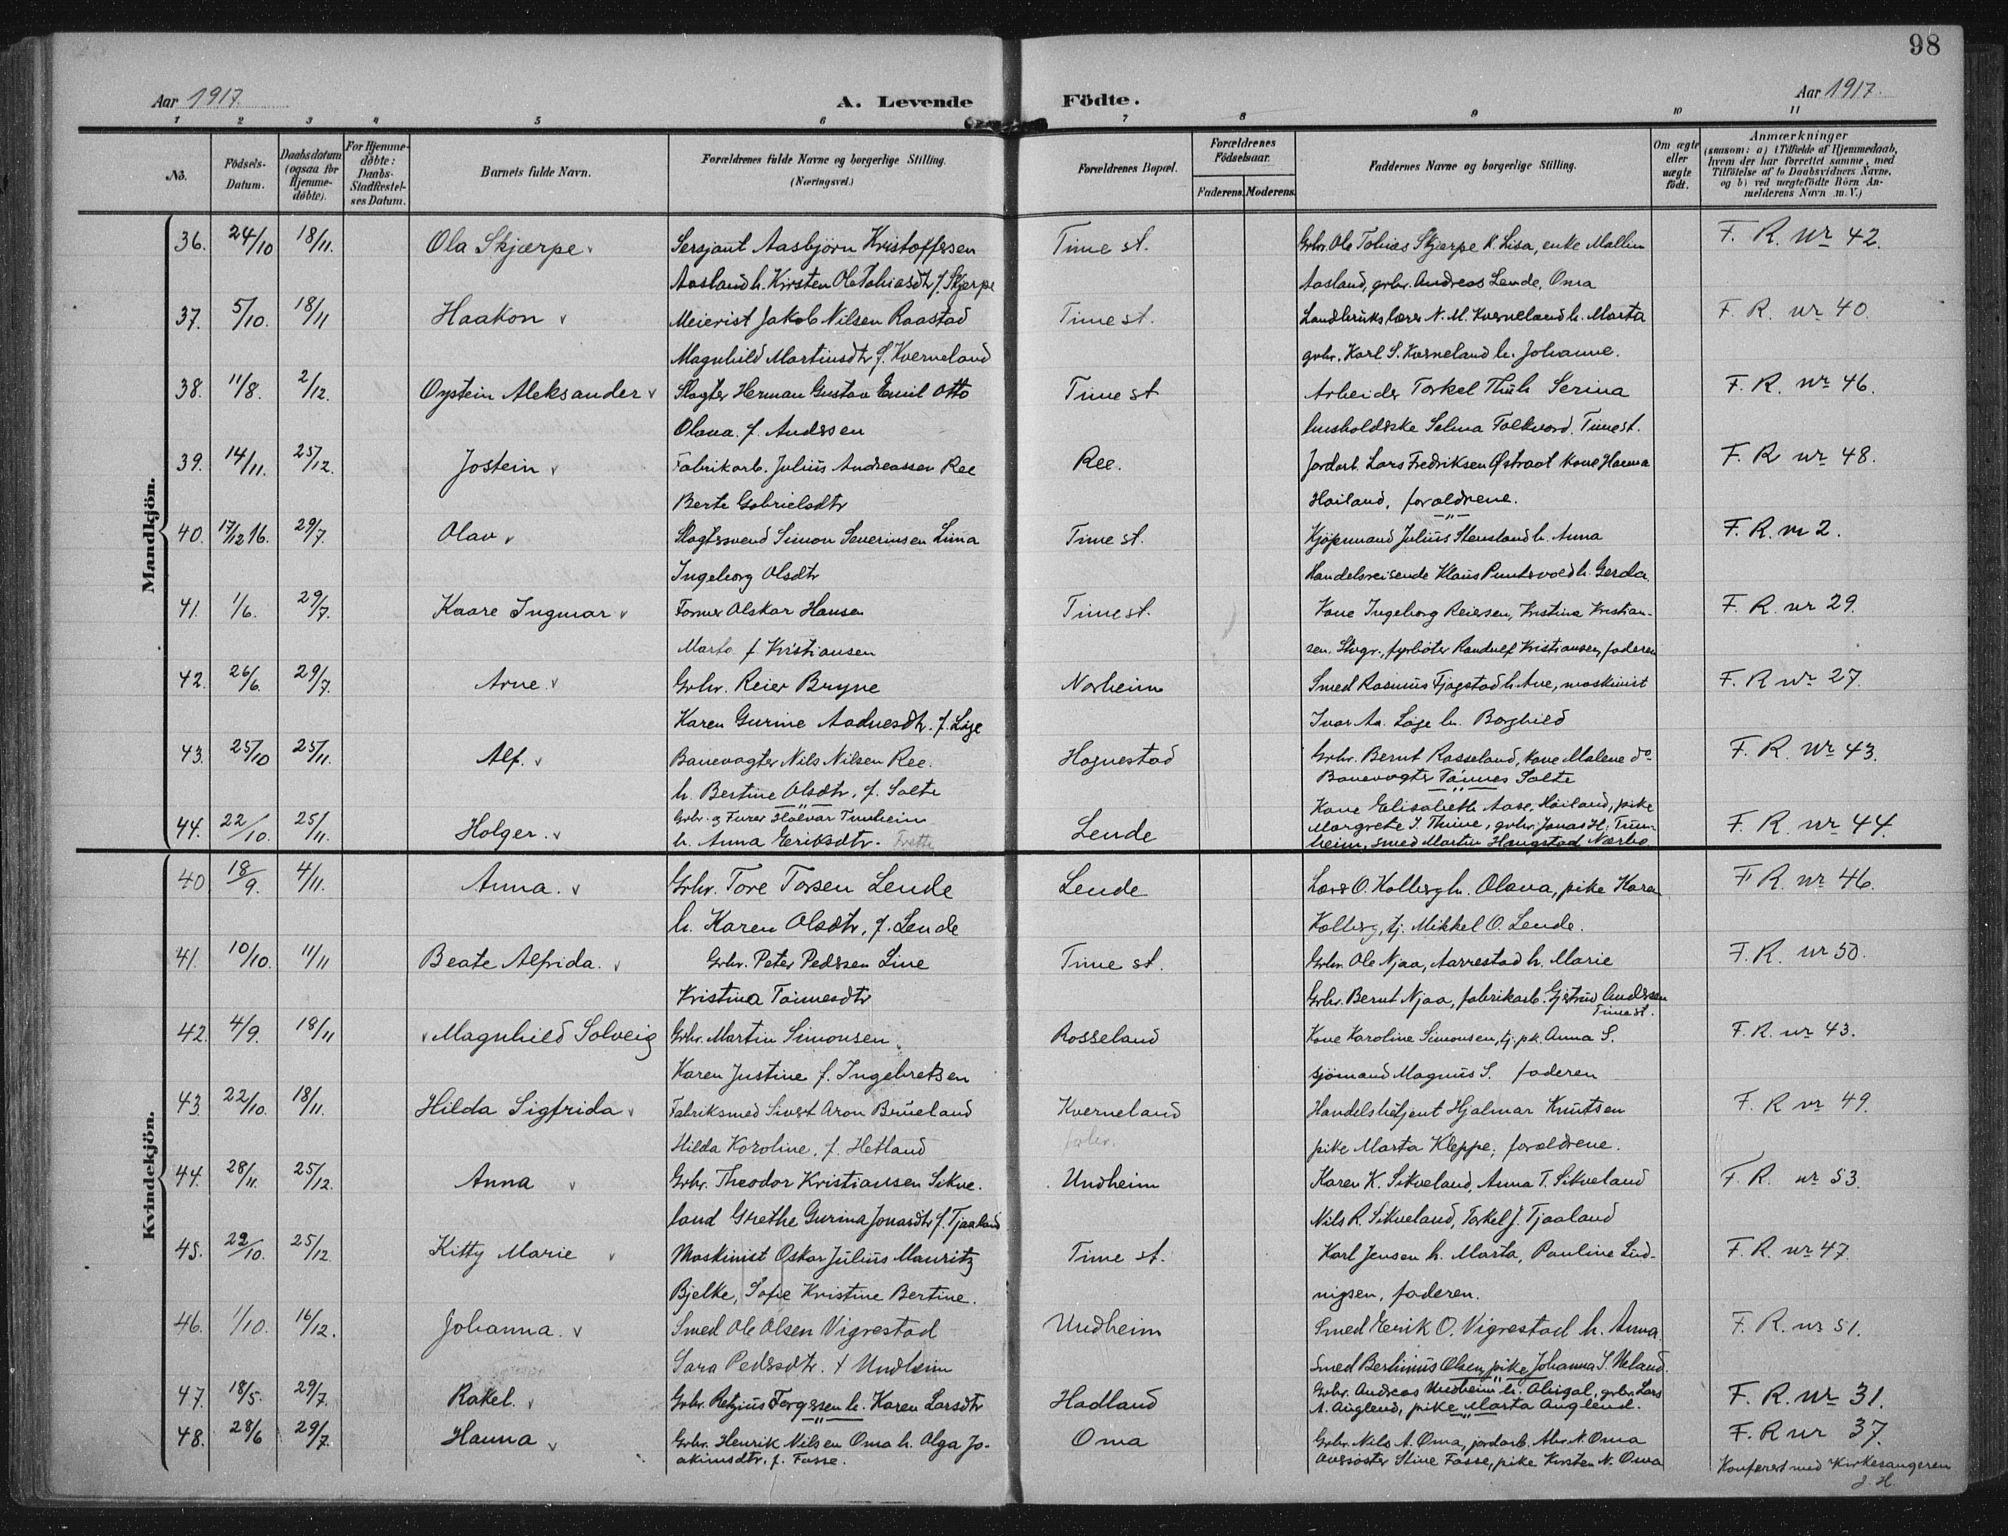 98
Aar 1917.
A. Levende Födte.
Aar 1917.
1 2 3 4 5 6 7 8 9 10 11
No.
Födsels-Datum.
Daabsdatum (ogsaa for Hjemmedöbte).
For Hjemmedöbte: Daabs-Stadfæstelses Datum.
Barnets fulde Navn.
Forældrenes fulde Navne og borgerlige Stilling. (Næringsvei.)
Forældrenes Bopæl.
Forældrenes Födselsaar.
Faderens. Moderens.
Faddernes Navne og borgerlige Stilling.
Om ægte eller uægte födt.
Anmærkninger
(saasom: a) i Tilfælde af Hjemmedaab, hvem der har forrettet samme, med Tilföielse af to Daabsvidners Navne, og b) ved uægtefödte Börn Anmelderens Navn m. V.)
Mandkjön.
36. 24/10 18/11. Ola Skjærpe Sersjant Aasbjörn Kristoffersen Time st. Grbr. Ole Tobias Skjærpe h. Lisa, enke Mallin F. R. nr 42.
Aasland h. Kirsten Ole Tobiasdtr f. Skjerpe Aasland, grbr. Andreas Lende, Oma
37. 5/10. 18/11 Haakon Meierist Jakob Nilsen Raastad Time st. Landbrukslærer N. M. Kverneland h. Marta F. R. nr 40.
Magnhild Martinsdtr f. Kverneland grbr. Karl S. Kverneland h. Johanne.
38. 11/8. 2/12. Oystein Aleksander Slagter Herman Gustav Emil Otto Time st Arbeider Torkel Thu h. Serina F. R. nr 46.
Olava. f. Anderssen husholderske Selma Folkvord. Time st.
39. 14/11. 25/12. Jostein Fabrikarb. Julius Andreassen Ree Ree. Jordarb. Lars Fredriksen Östraat kone Hanna F. R nr 48.
Berte Gabrielsdtr Hailand, forældrene.
40. 17/12 16. 29/7. Olav Slagtersvend Simon Severinsen Lima Time st. Kjöpmand Julius Stensland h. Anna F. R. nr 2.
Ingeborg Olsdtr Handelsreisende Klaus Puntsvoed h. Gerda
41. 1/6. 29/7. Kaare Ingmar Former Alskar Hansen Time st. Kone Ingeborg Reiersen, Kristina Kristian- F. R. nr 29.
Marta f Kristiansen sen. Stvgr., fyrböter Randulf Kristiansen, faderen
42. 26/6. 29/7. Arne. Grbr. Reier Bryne Norheim Smed Rasmus Fjogstad h. Ane, maskinist F. R nr 27.
Karen Gurine Aadnesdtr. f. Löge Ivar Aa. Löge h. Borghild
43. 25/10 25/11. Alf. Banevogter Nils Nilsen Ree. Hognestad Grbr. Bernt Rosseland, kone Malene do F. R. nr 43.
h. Bertine Olsdtr, f. Salte Banevogter Tönnes Salte
44. 22/10. 25/11. Holger. Grbr. og Furer Halvar Tunheim Lende Kone Elisabeth Aase, Hailand, pike F. R. nr 44
h. Anna Eriksdtr. Margrete T. Thime, grbr. Jonas H. Tunheim, smed Martin Haugstad Nærbo
Kvindekjön.
40 18/9. 4/11. Anna. Grbr. Tore Torsen Lende Lende Lars O. Kolberg h. Olava, pike Karen F R. nr 46.
h. Karen Olsdtr, f. Lende Kolberg, tj. Mikkel O. Lende.
41. 10/10. 11/11 Beate Alfrida. Grbr. Peter Pederssen Line Time st. Grbr. Ole Njaa, Aarrestad h. Marie F. R. nr 50.
Kristina Tönnesdtr Grbr. Bernt Njaa, fabrikarb. Gjetrud Anderssen Time st.
42. 4/9. 18/11 Magnhild Solveig Grbr. Martin Simonsen Rosseland Kone Karoline Simonsen, tj. pk. Anna S. F. R. nr 43.
Karen Justine f. Ingebretsen sjömand Magnus S. faderen
43. 22/10. 18/11. Hilda Sigfrida Fabriksmed Sivert Aron Brueland Kverneland Handelsbetjent Hjalmar Knutsen F. R nr 49.
Hilda Karoline, f. Hetland pike Marta Kleppe, forældrene.
44. 28/11. 25/12. Anna Grbr. Theodor Kristiansen Sikve- Undheim Karen K. Sikveland, Anna T. Sikveland F. R. nr 53.
land Grethe Gurina Jonasdtr f. Tjaaland Nils R. Sikveland, Torkel J. Tjaaland
45. 22/10. 25/12. Kitty Marie Maskinist Oskar Julius Mauritz Time st. Karl Jensen h. Marta, Pauline Lud- F. R. nr 47.
Bjelke, Sofie Kristine Bertine. vigsen, faderen.
46. 1/10. 16/12. Johanna. Smed Ole Olsen Vigrestad Undheim Smed Eerik O. Vigrestad h. Anna F. R. nr 51.
Sara Pederssdtr. f Undheim Smed Berthinus Olsen, pike Johanna S.
47. 18/5. 29/7. Rakel. Grbr. Retzius Torgerssen h. Karen Larsdtr Hadland Grbr. Andreas Undheim h. Abigal, grbr. Lars F. R. nr 31.
A. Auglend, pike Marta Auglend.
48. 28/6 29/7. Hanna Grbr. Henrik Nilsen Oma h. Olga Jo- Oma Grbr. Nils A. Oma, jordarb. Abr. N. Oma F. R nr 37.
akimsdtr. f. Fosse. Stine Fosse, pike Kirsten N. Oma
Konferert med Kirkesangeren
J. H.